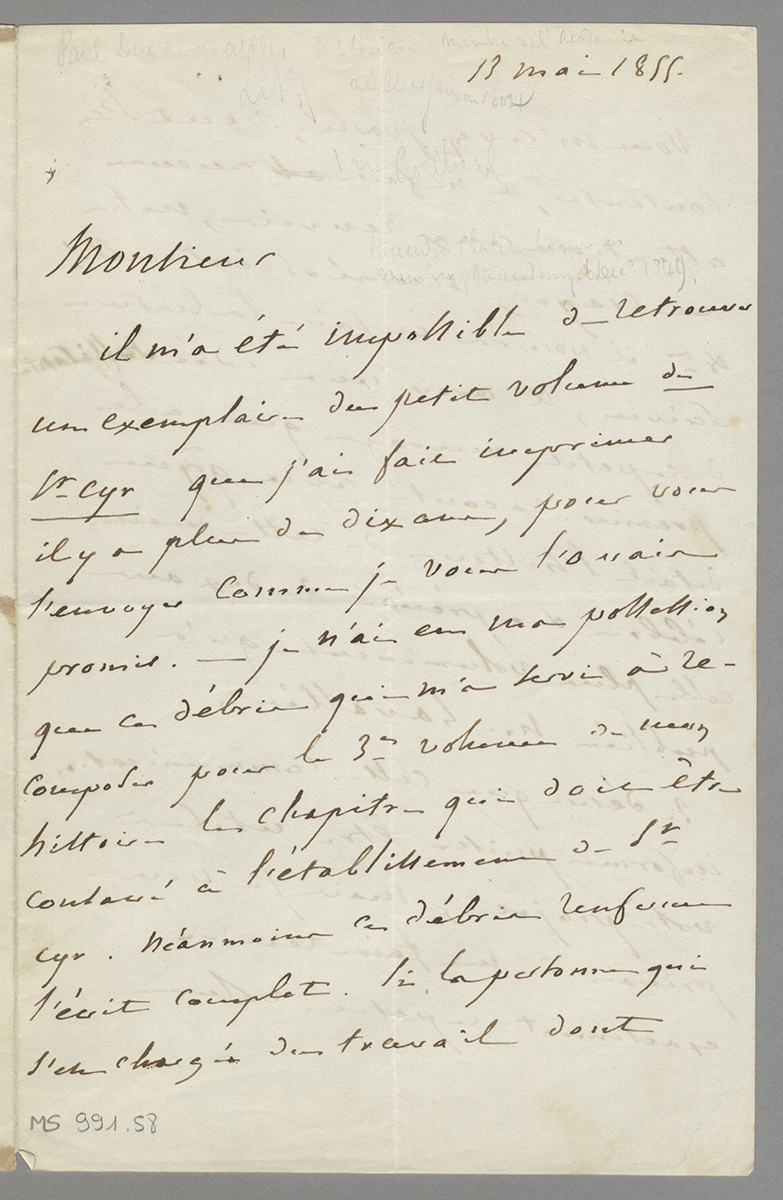 Paul Duc de Noailles historien membre de l'Académie
13 mai 1855.
né le 4 janvier 1802
Monsieur
il m'a été impossible de retrouver
un exemplaire du petit volume de
St cyr que j'ai fait imprimer
il y a plus de dix ans, pour vous
l'envoyer comme je vous l'avais
promis. — je n'ai en ma possession
que ce débris qui m'a servi à re-
composer pour le 3e volume de mon
histoire le chapitre qui doit être
consacré à l'établissement de St
cyr. néanmoins ce débris renferme
l'écrit complet. si la personne qui
s'est chargée du travail dont
MS 991.58